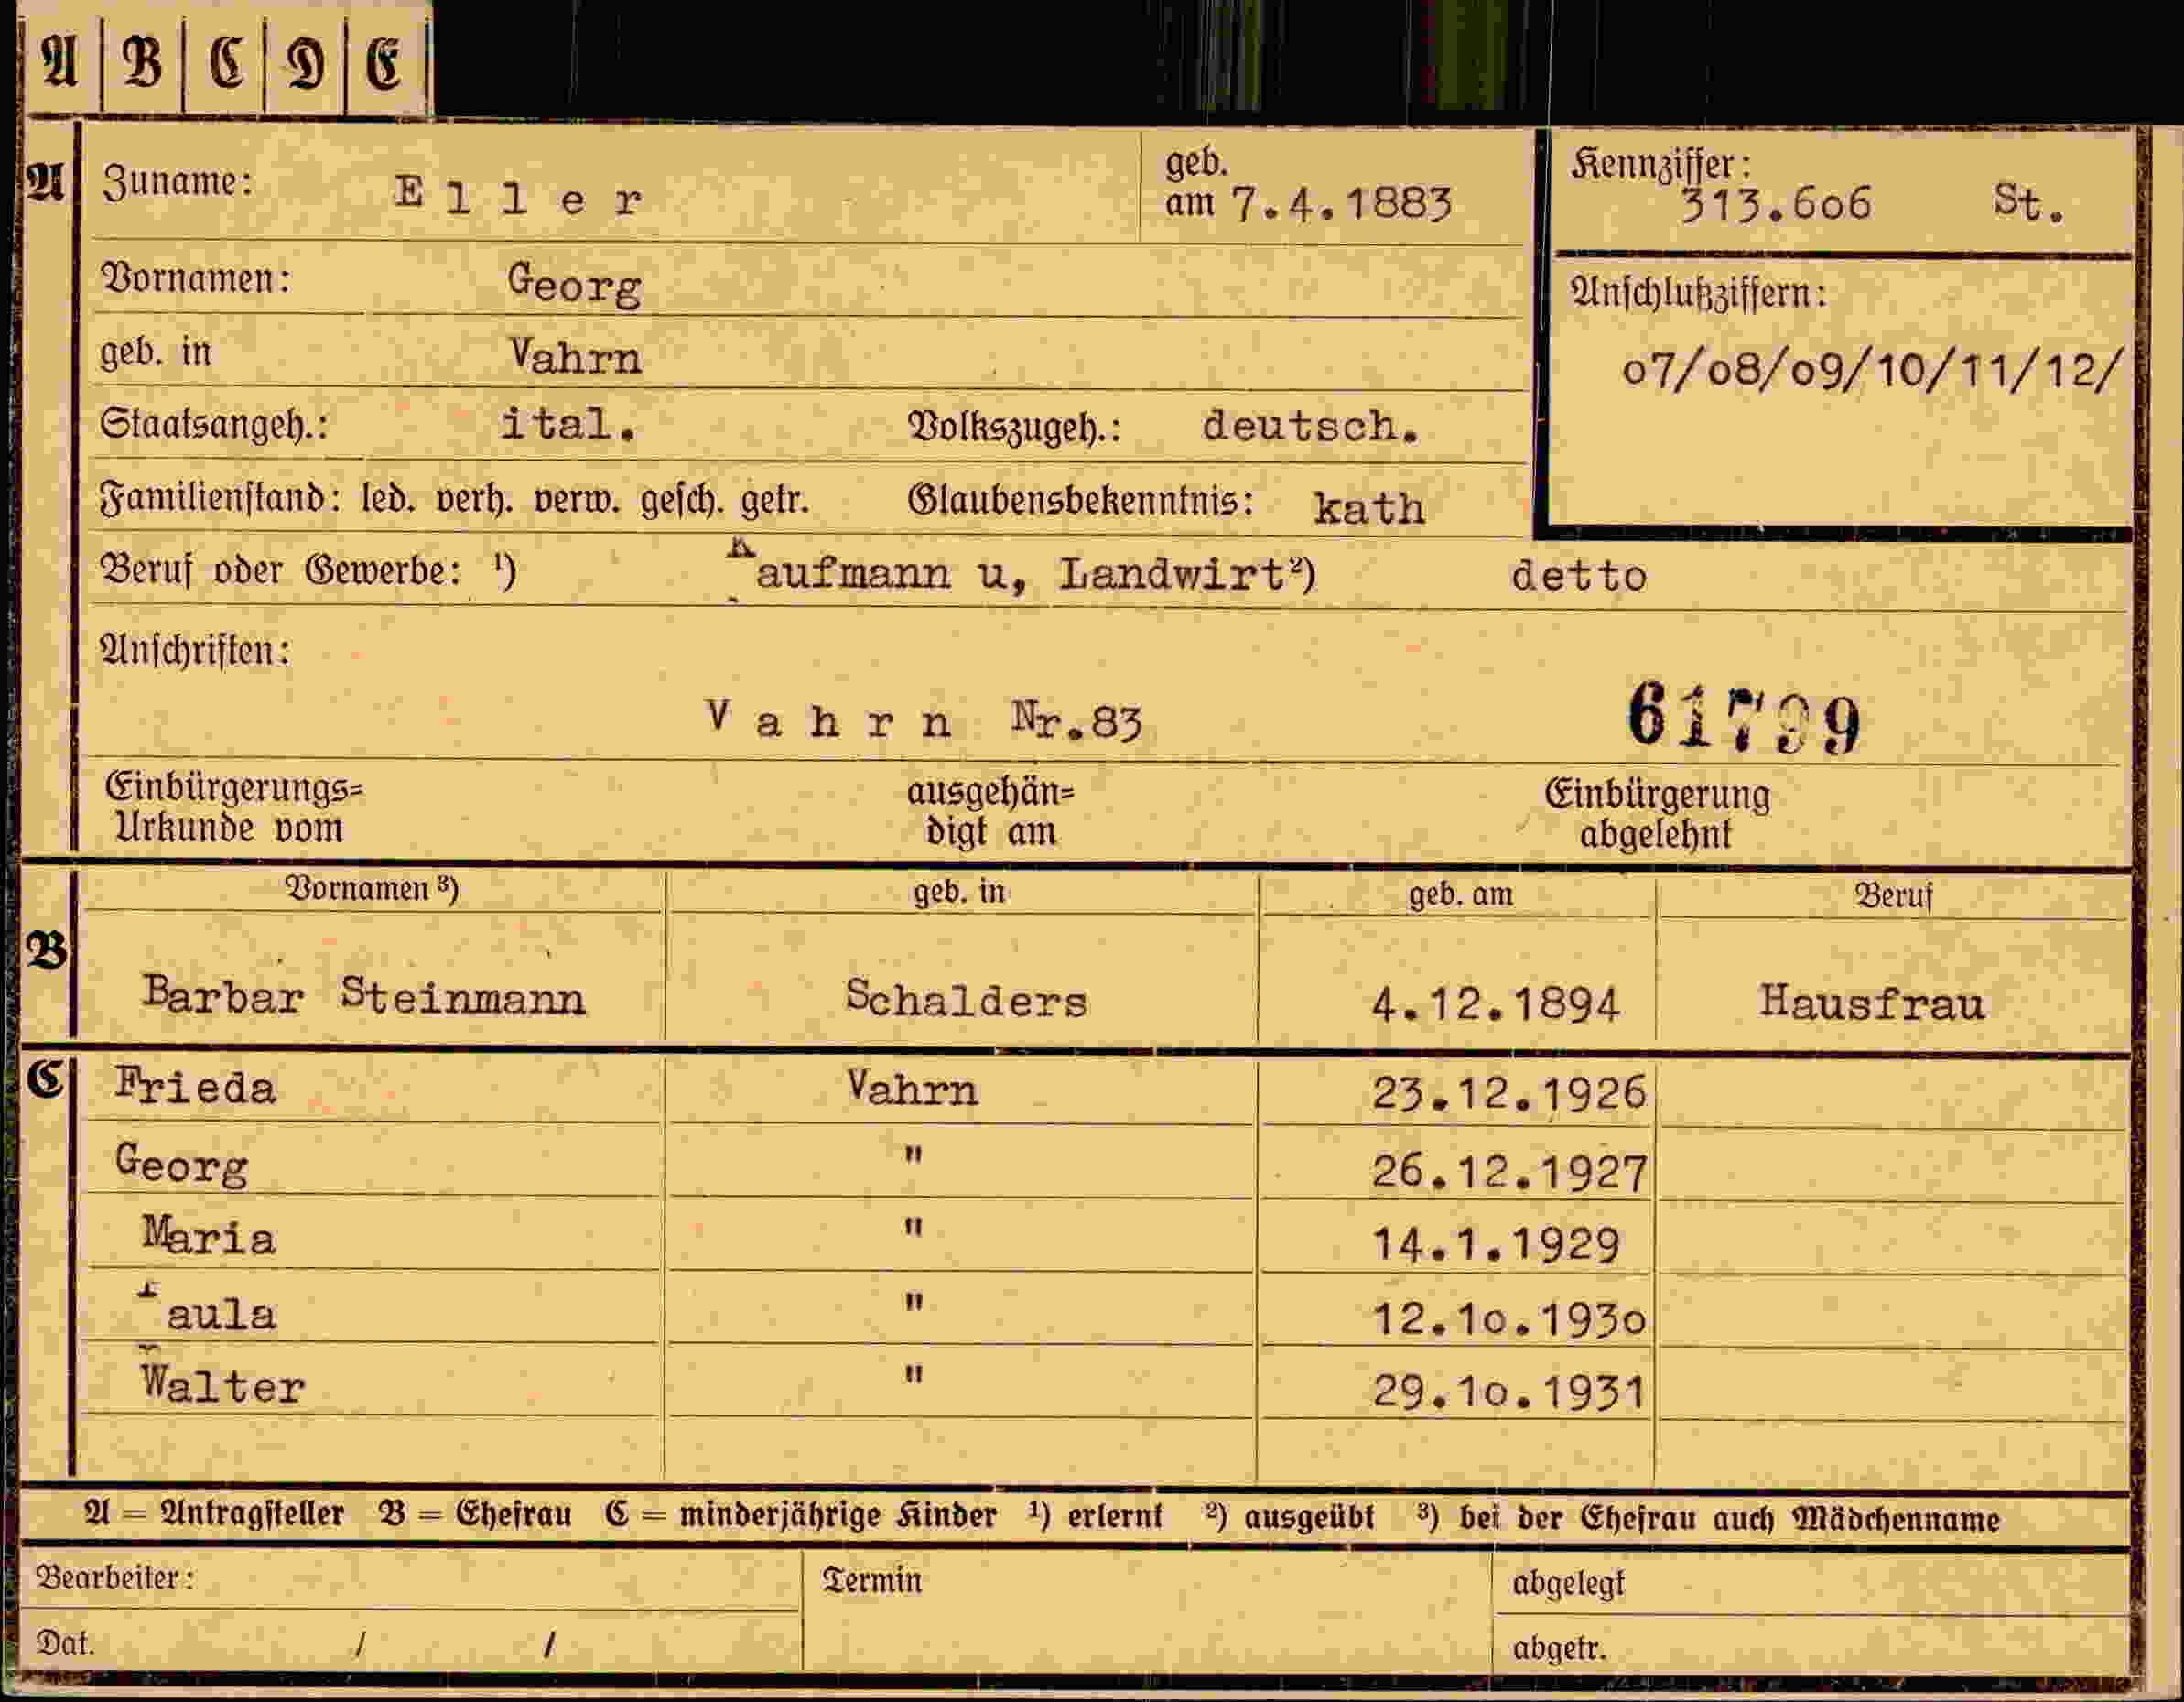 A B C D E
A Zuname: Eller geb. am 7.4.1883 Kennziffer: 313.606 St.
Vornamen: Georg Anschlußziffern:
geb. in Vahrn 07/08/09/10/11/12/
Staatsangeh.: ital. Volkszugeh.: deutsch.
Familienstand: led. verh. verw. gesch. getr. Glaubensbekenntnis: kath
Beruf oder Gewerbe: ¹) Kaufmann u, Landwirt²) detto
Anschriften:
Vahrn Nr.83 61799
Einbürgerungs= ausgehän= Einbürgerung
Urkunde vom digt am abgelehnt
Vornamen ³) geb. in geb. am Beruf
B Barbar Steinmann Schalders 4.12.1894 Hausfrau
C Frieda Vahrn 23.12.1926
Georg " 26.12.1927
Maria " 14.1.1929
Paula " 12.10.1930
Walter " 29.10.1931
A = Antragsteller B = Ehefrau C = minderjährige Kinder ¹) erlernt ²) ausgeübt ³) bei der Ehefrau auch Mädchenname
Bearbeiter: Termin abgelegt
Dat. / / abgetr.